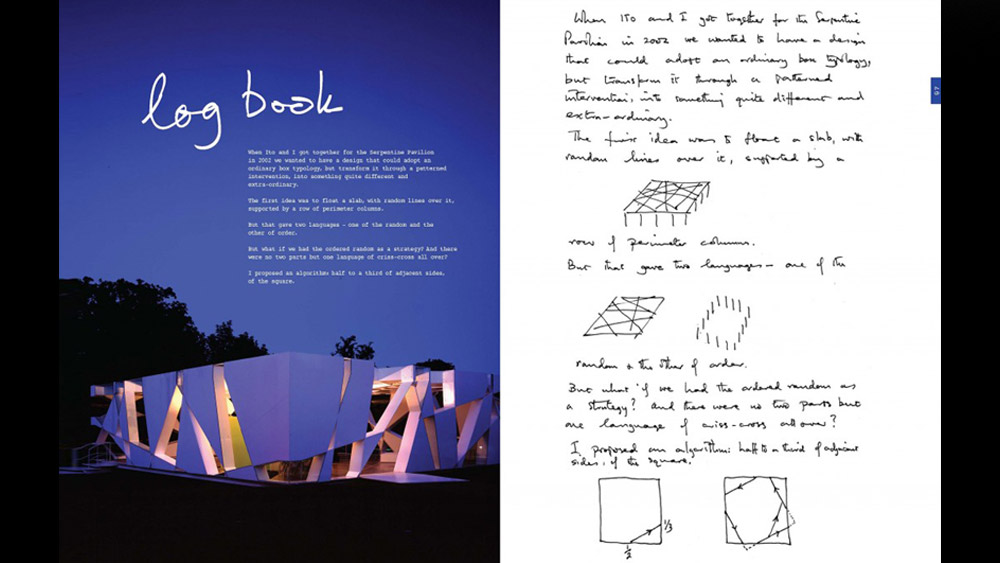 log book
When Ito and I got together for the Serpentine Pavilion
in 2002 we wanted to have a design that could adopt an
ordinary box typology, but transform it through a patterned
intervention, into something quite different and
extra-ordinary.
The first idea was to float a slab, with random lines over it,
supported by a row of perimeter columns.
But that gave two languages – one of the random and the
other of order.
But what if we had the ordered random as a strategy? And there
were no two parts but one language of criss-cross all over?
I proposed an algorithm: half to a third of adjacent sides,
of the square.
When ITO and I got together for the Serpentine
Pavilion in 2002 we wanted to have a design
that could adopt an ordinary box typology,
but transform it through a patterned
intervention, into something quite different and
extra-ordinary.
The first idea was to float a slab, with
random lines over it, supported by a
row of perimeter columns.
But that gave two languages – one of the
random & the other of order.
But what if we had the ordered random as
a strategy? And there were no two parts but
one language of criss-cross all over?
I proposed an algorithm: half to a third of adjacent
sides, of the square.
1/3
1/2
97